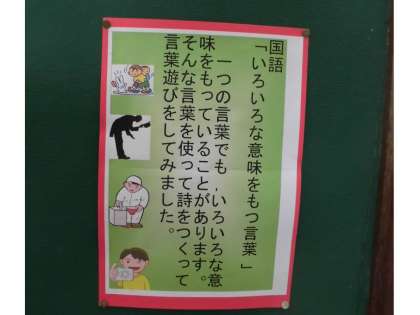 国語
「いろいろな意味をもつ言葉」
一つの言葉でも、いろいろな意
味をもっていることがあります。
そんな言葉を使って詩をつくって
言葉遊びをしてみました。